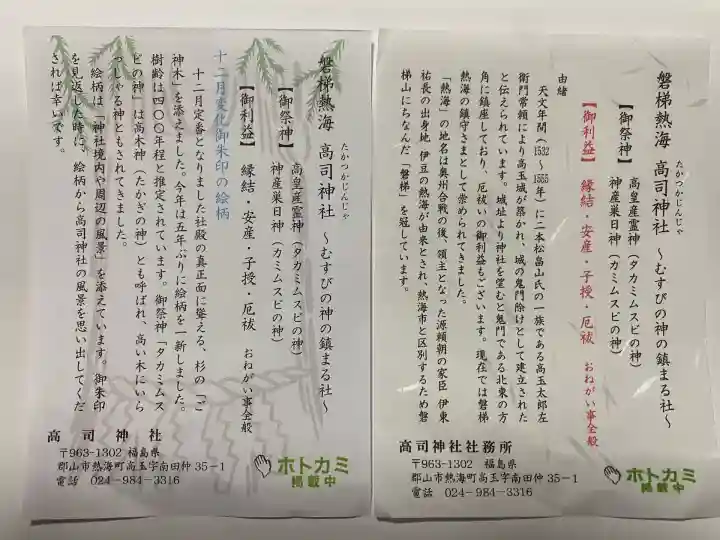 磐梯熱海 高司神社 ～むすびの神の鎮まる社～
たかつかじんじゃ
【御祭神】 高皇産霊神（タカミムスビの神）
神産巣日神（カミムスビの神）
【御利益】 縁結・安産・子授・厄祓 おねがい事全般
十二月変化御朱印の絵柄
十二月定番となりました社殿の真正面に聳える、杉の「ご
神木」を添えました。今年は五年ぶりに絵柄を一新しました。
樹齢は四〇〇年程と推定されています。御祭神「タカミムス
ビの神」は高木神（たかぎの神）とも呼ばれ、高い木にいら
っしゃる神ともされてきました。
絵柄は「神社境内や周辺の風景」を添えています。御朱印
を見返した時に、絵柄から高司神社の風景を思い出してくだ
されば幸いです。
高司神社
〒963-1302 福島県
郡山市熱海町高玉字南田仲35－1
電話 024－984－3316
ホトカミ
掲載中
磐梯熱海 高司神社 ～むすびの神の鎮まる社～
たかつかじんじゃ
【御祭神】 高皇産霊神（タカミムスビの神）
神産巣日神（カミムスビの神）
【御利益】 縁結・安産・子授・厄祓 おねがい事全般
由緒
天文年間（1532～1555年）に二本松畠山氏の一族である高玉太郎左
衛門常頼により高玉城が築かれ、城の鬼門除けとして建立された
と伝えられています。城址より神社を望むと鬼門である北東の方
角に鎮座しており、厄祓いの御利益もございます。現在では磐梯
熱海の鎮守さまとして崇められてきました。
「熱海」の地名は奥州合戦の後、領主となった源頼朝の家臣 伊東
祐長の出身地 伊豆の熱海が由来とされ、熱海市と区別するため磐
梯山にちなんだ「磐梯」を冠しています。
高司神社社務所
〒963-1302 福島県
郡山市熱海町高玉字南田仲35－1
電話 024-984-3316
ホトカミ
掲載中